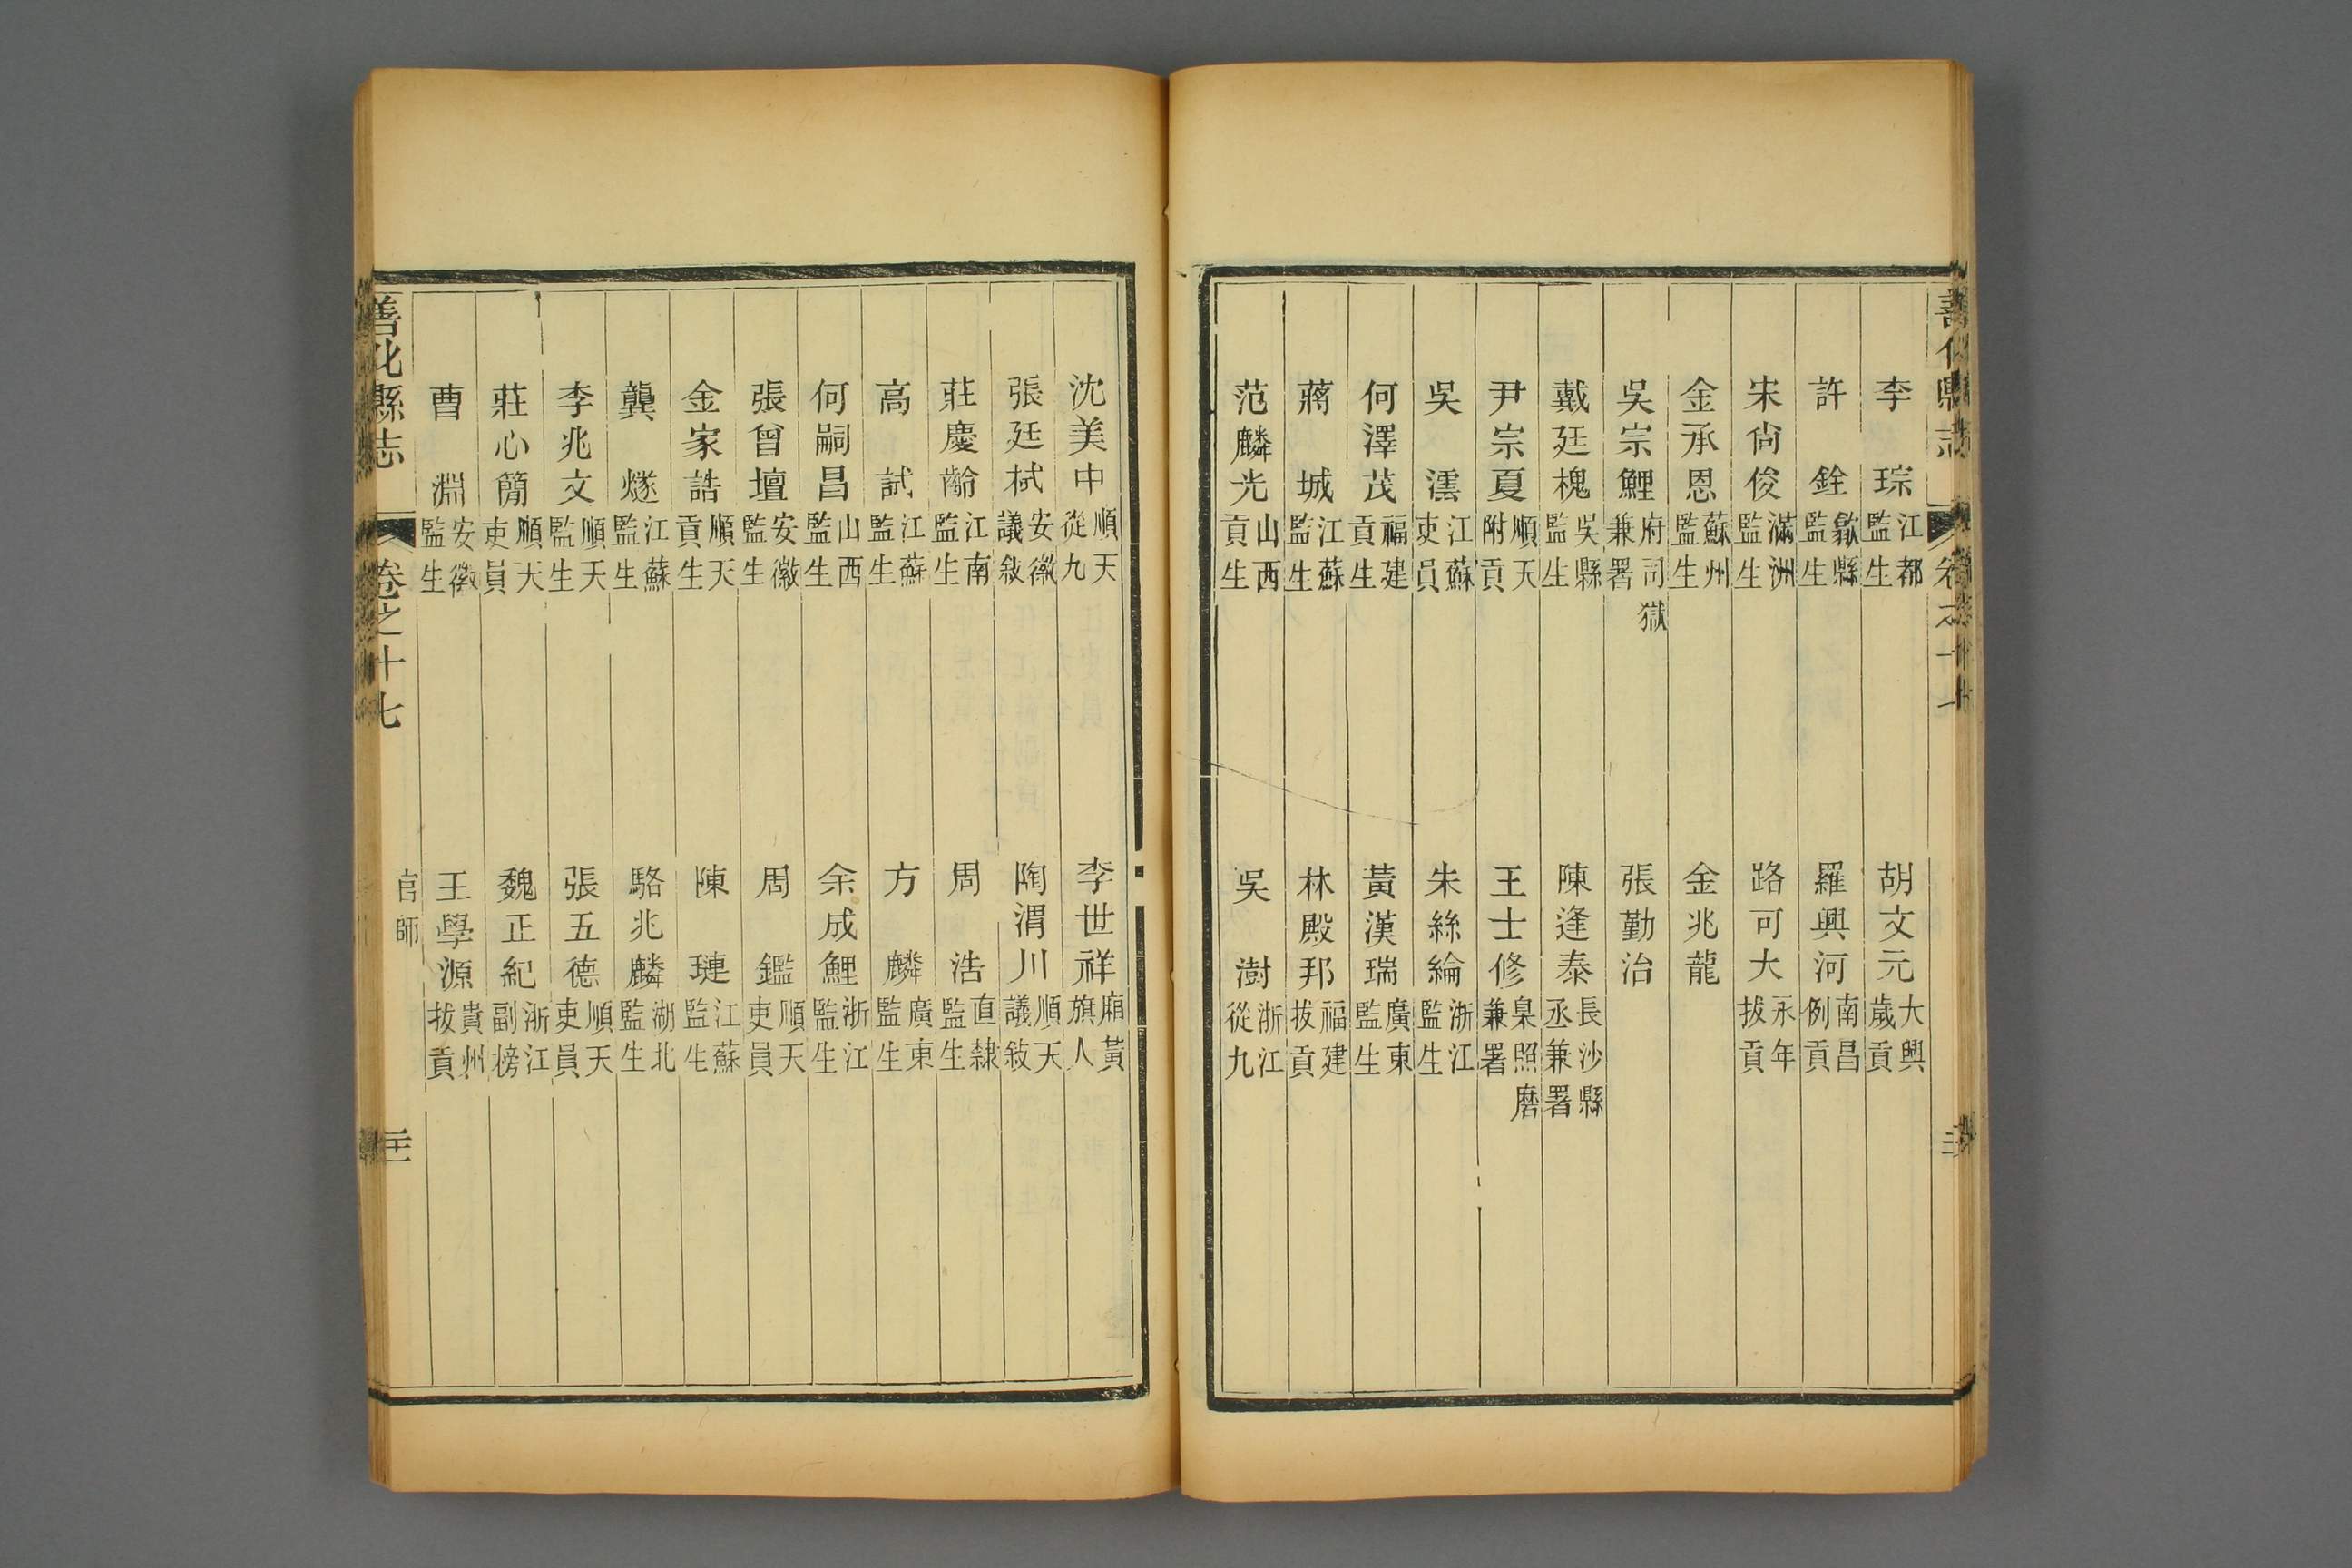 善化縣志 卷之十七
李　琮 江都監生　胡文元 大興歲貢
許　銓 歙縣監生　羅興河 南昌例貢
宋尙俊 滿洲監生　路可大 永年拔貢
金承恩 蘇州監生　金兆龍
吳宗鯉 府司獄兼署　張勤治
戴廷槐 吳縣監生　陳逢泰 長沙縣丞兼署
尹宗夏 順天附貢　王士修 臬照磨兼署
吳　濡 江蘇吏員　朱絲綸 浙江監生
何澤茂 福建貢生　黃漢瑞 廣東監生
蔣　城 江蘇監生　林殿邦 福建拔貢
范麟光 山西貢生　吳　澍 浙江從九
沈美中 順天從九　李世祥 廂黃旗人
張廷栻 安徽議敍　陶渭川 順天議敍
莊慶齡 江南監生　周　浩 直隸監生
高　試 江蘇監生　方　麟 廣東監生
何嗣昌 山西監生　余成鯉 浙江監生
張曾壇 安徽監生　周　鑑 順天吏員
金家誥 順天貢生　陳　璉 江蘇監生
龔　燧 江蘇監生　駱兆麟 湖北監生
李兆文 順天監生　張五德 順天吏員
莊心簡 順天吏員　魏正紀 浙江副榜
曹　淵 安徽監生　王學源 貴州拔貢
善化縣志 卷之十七 官師